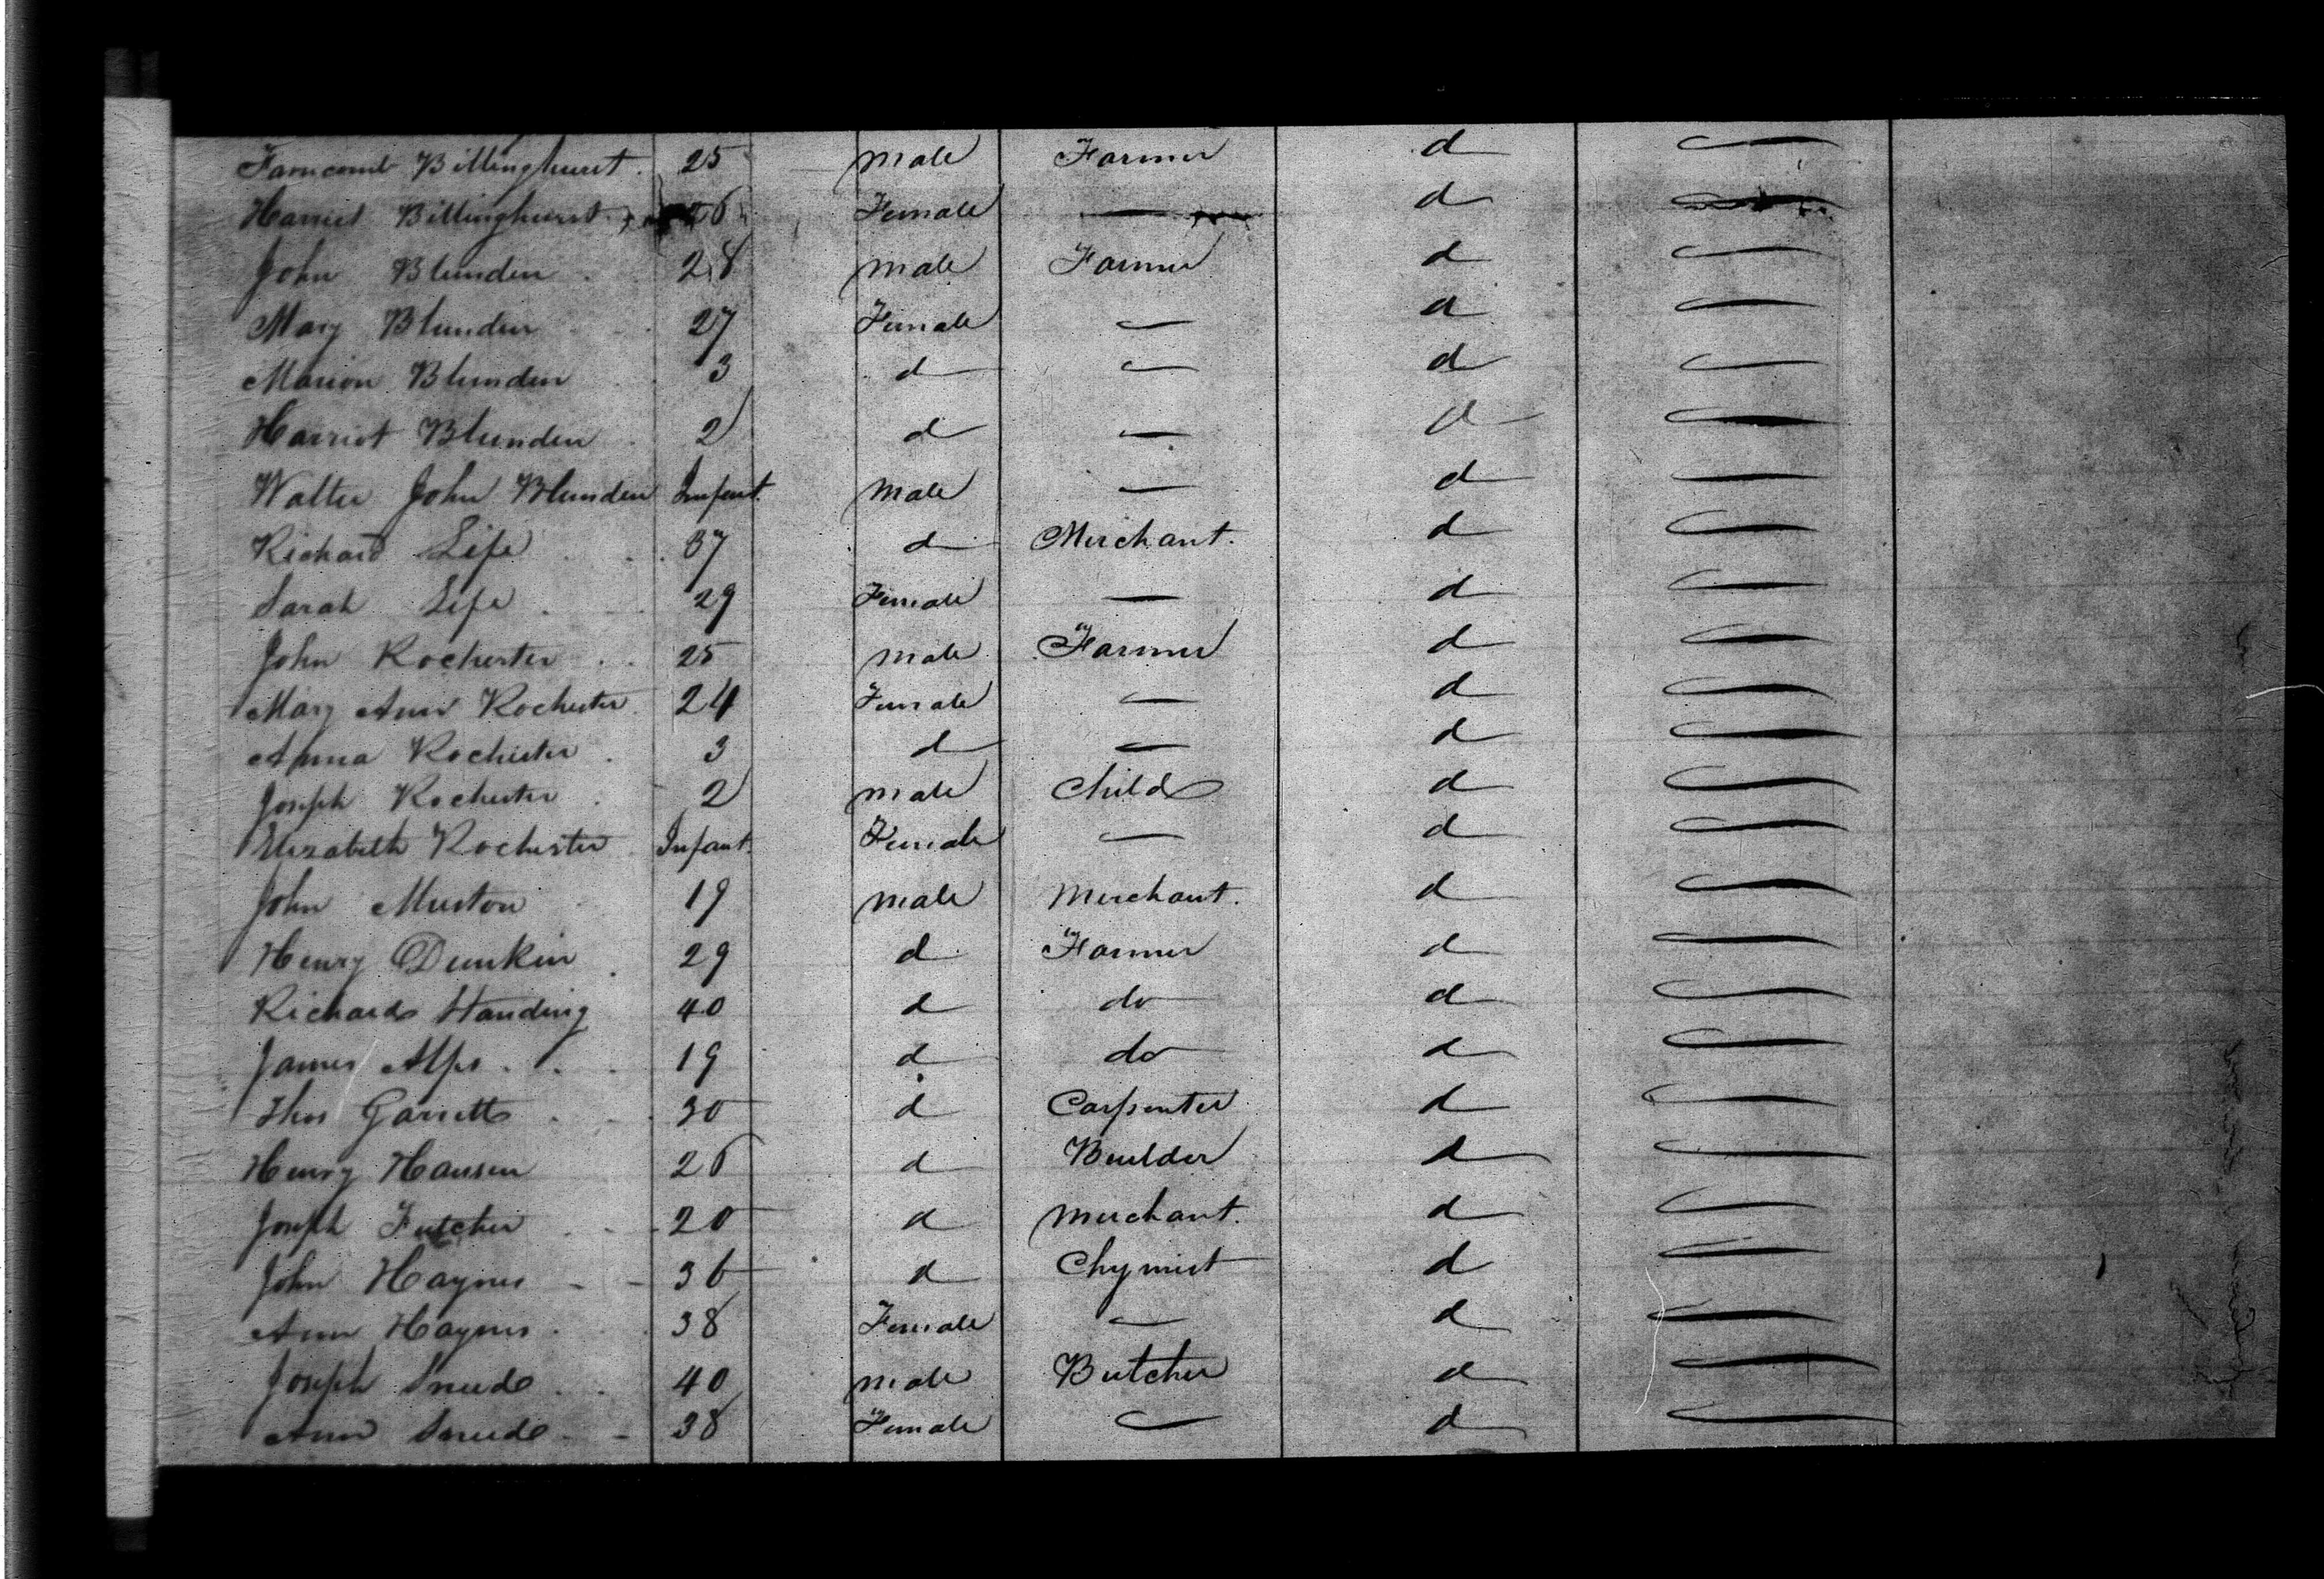 Farncomb Billinghurst . 25 male Farmer d —
Harriet Billinghurst 26 Female — d —
John Blunden . 28 male Farmer d —
Mary Blunden 27 Female — d —
Marion Blunden 3 d — d —
Harriot Blunden 2 d — d —
Walter John Blunden Infant. male — d —
Richard Lipe . . 37 d Merchant. d —
Sarah Lipe . 29 Female — d —
John Rochester . . 25 male Farmer d —
Mary Ann Rochester 24 Female — d —
Anna Rochester . 3 d — d —
Joseph Rochester . 2 male Child d —
Elizabeth Rochester Infant. Female — d —
John Muston 19 male Merchant. d —
Henry Dunkin . 29 d Farmer d —
Richard Standing 40 d do d —
James Alps . . . 19 d do d —
Thos Garrett . . 30 d Carpenter d —
Henry Hansen 26 d Builder d —
Joseph Futcher . - 20 d Merchant. d —
John Haynes - - 36 d Chymist d —
Ann Haynes . . 38 Female — d —
Joseph Sneede . . 40 male Butcher d —
Ann Sneede - - 38 Female — d —